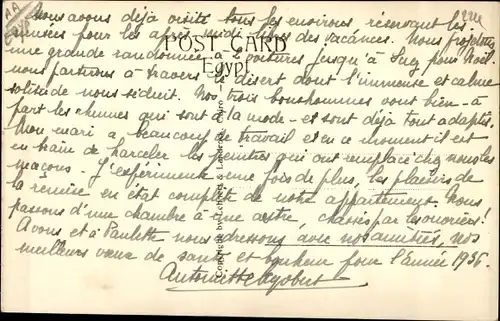 Nous avons déjà visité tous les environs réservant les
musées pour les après-midi libres des vacances. Nous projetons
une grande randonnée à 2 voitures jusqu'à Suez pour Noël
nous partirons à travers le désert dont l'immense et calme
solitude nous séduit. Nos trois bonshommes vont bien - à
part les rhumes qui sont à la mode - et sont déjà tout adaptés.
Mon mari a beaucoup de travail et en ce moment il est
en train de harceler les peintres qui ont remplacé chez nous les
maçons. J'expérimente une fois de plus, les plaisirs de
la remise en état complète de notre appartement. Nous
passons d'une chambre à une autre, chassés par les ouvriers!
A vous et à Paulette nous adressons avec nos amitiés, nos
meilleurs vœux de santé et bonheur pour l'Année 1936.
Antoinette
POST CARD
Egypt
Copyright by Lehnert & Landrock, Cairo